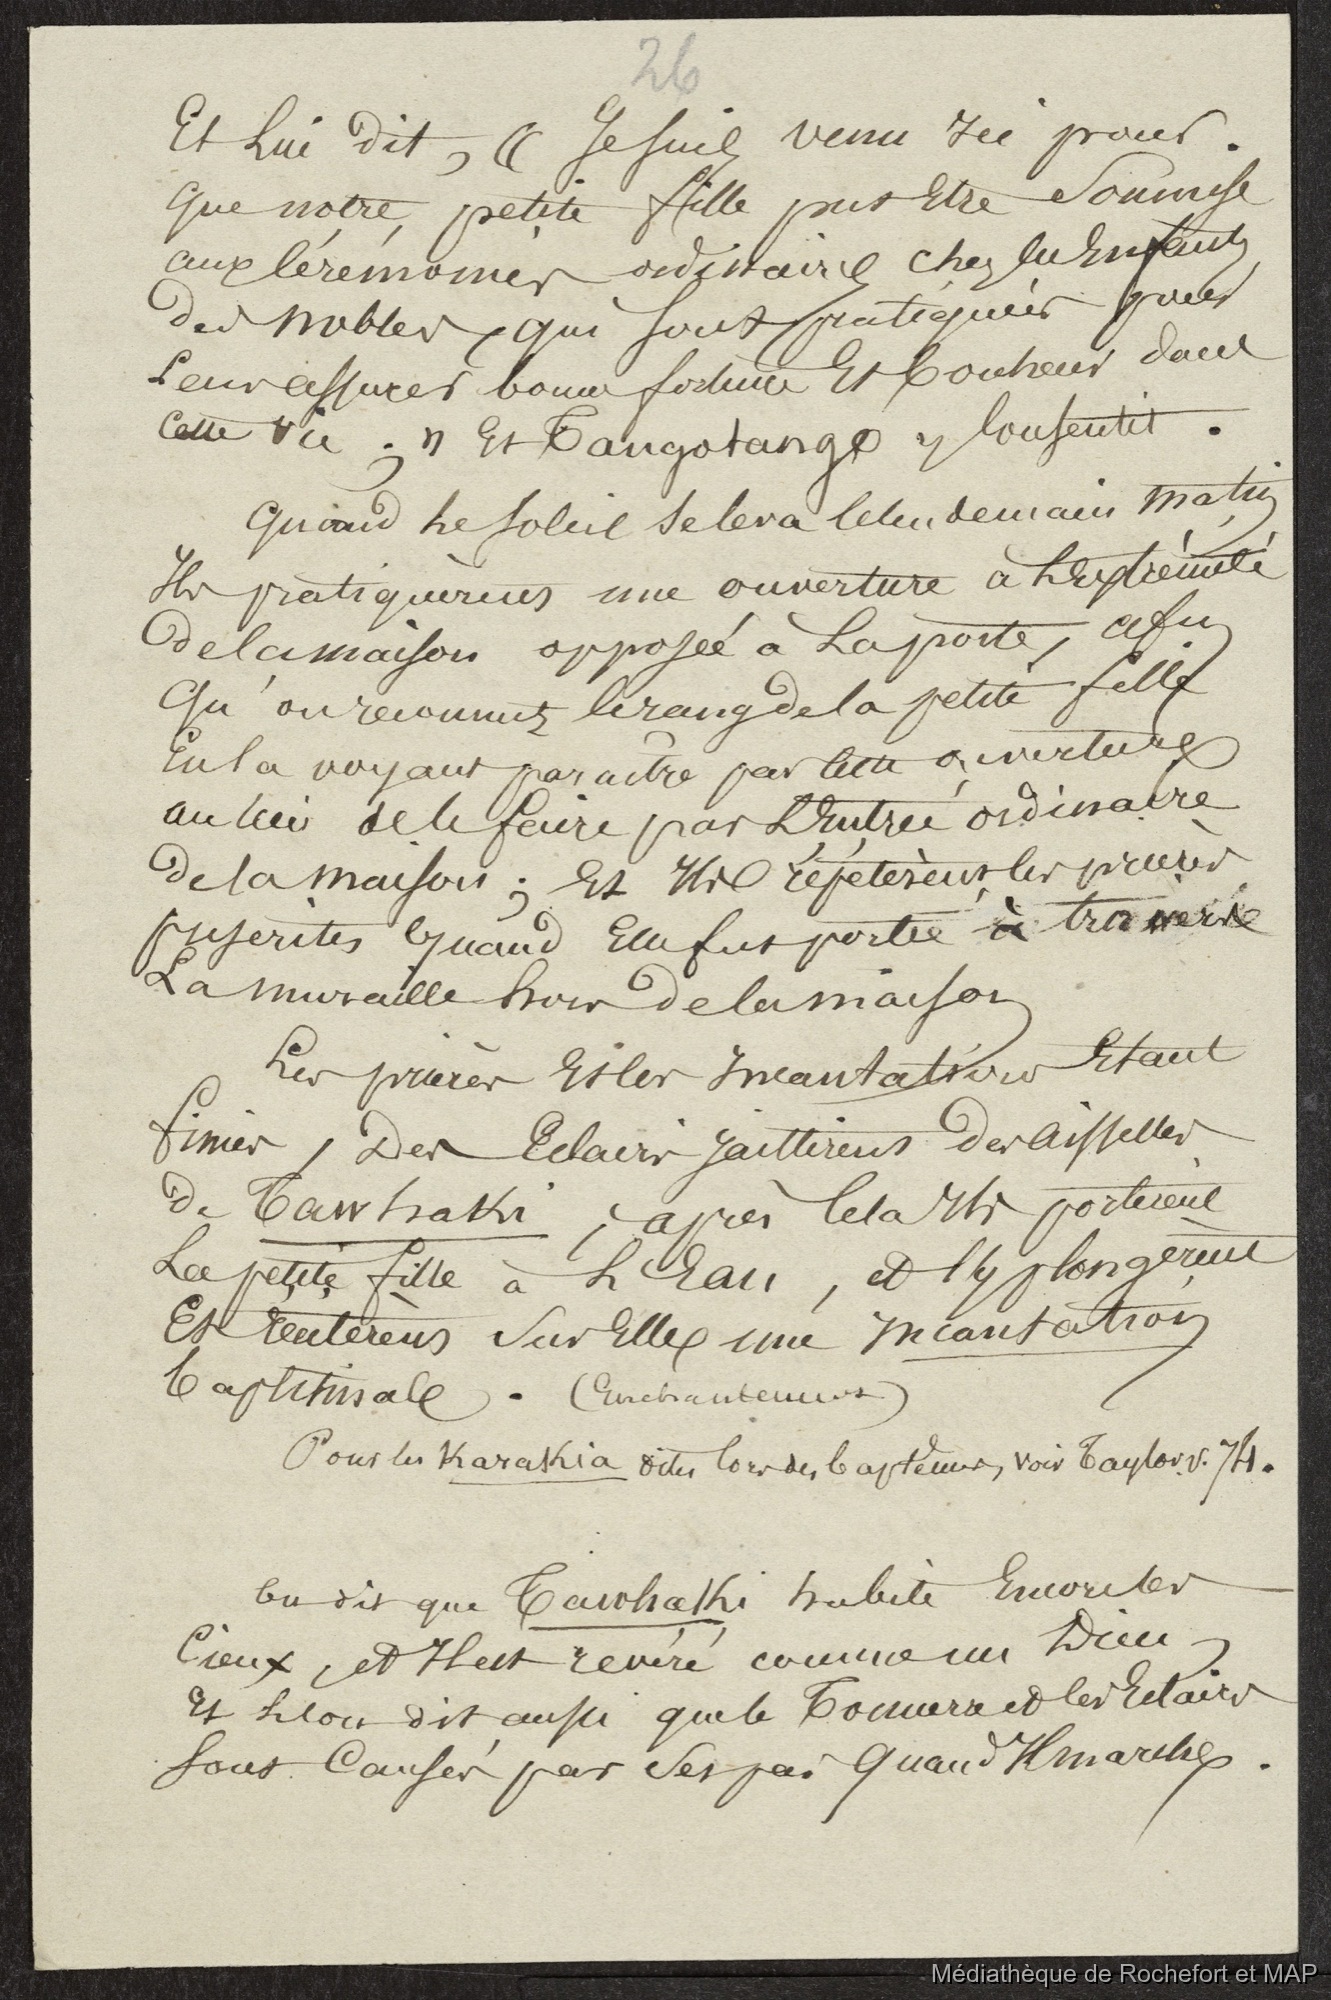 26
Et Lui dit, « Je suis venu Ici pour.
que notre petite fille put Etre Soumise
aux Cérémonies ordinaires chez les Enfants
des nobles, qui sont pratiquées pour
Leur assurer bonne fortune Et bonheur dans
Cette vie ; » Et Tangotango y Consentit.
Quand Le soleil se leva le lendemain matin
Ils pratiquèrent une ouverture à L'Extrémité
de la maison opposée à La porte, afin
qu'on reconnut le rang de la petite fille
En la voyant paraitre par cette ouverture
au lieu de le faire par L'Entrée ordinaire
de la maison ; Et Ils répetèrent les prières
prescrites quand Elle fut portée à travers
La muraille hors de la maison
Les prières Et les Incantations Etant
finies, Des Eclairs jaillirent des Aisselles
de Tawhaki ; après Cela Ils portèrent
La petite fille à L'Eau, et l'y plongèrent
Et récitèrent Sur Elle une Incantation
baptismale. (Enchantement)
Pour les Karakia dites lors des baptèmes, voir Taylor p. 74.
On dit que Tawhaki habite Encore les
Cieux, et Il est révéré comme un Dieu,
Et L'on dit aussi que le Tonnerre et les Eclairs
Sont Causés par Ses pas Quand Il marche.
Médiathèque de Rochefort et MAP